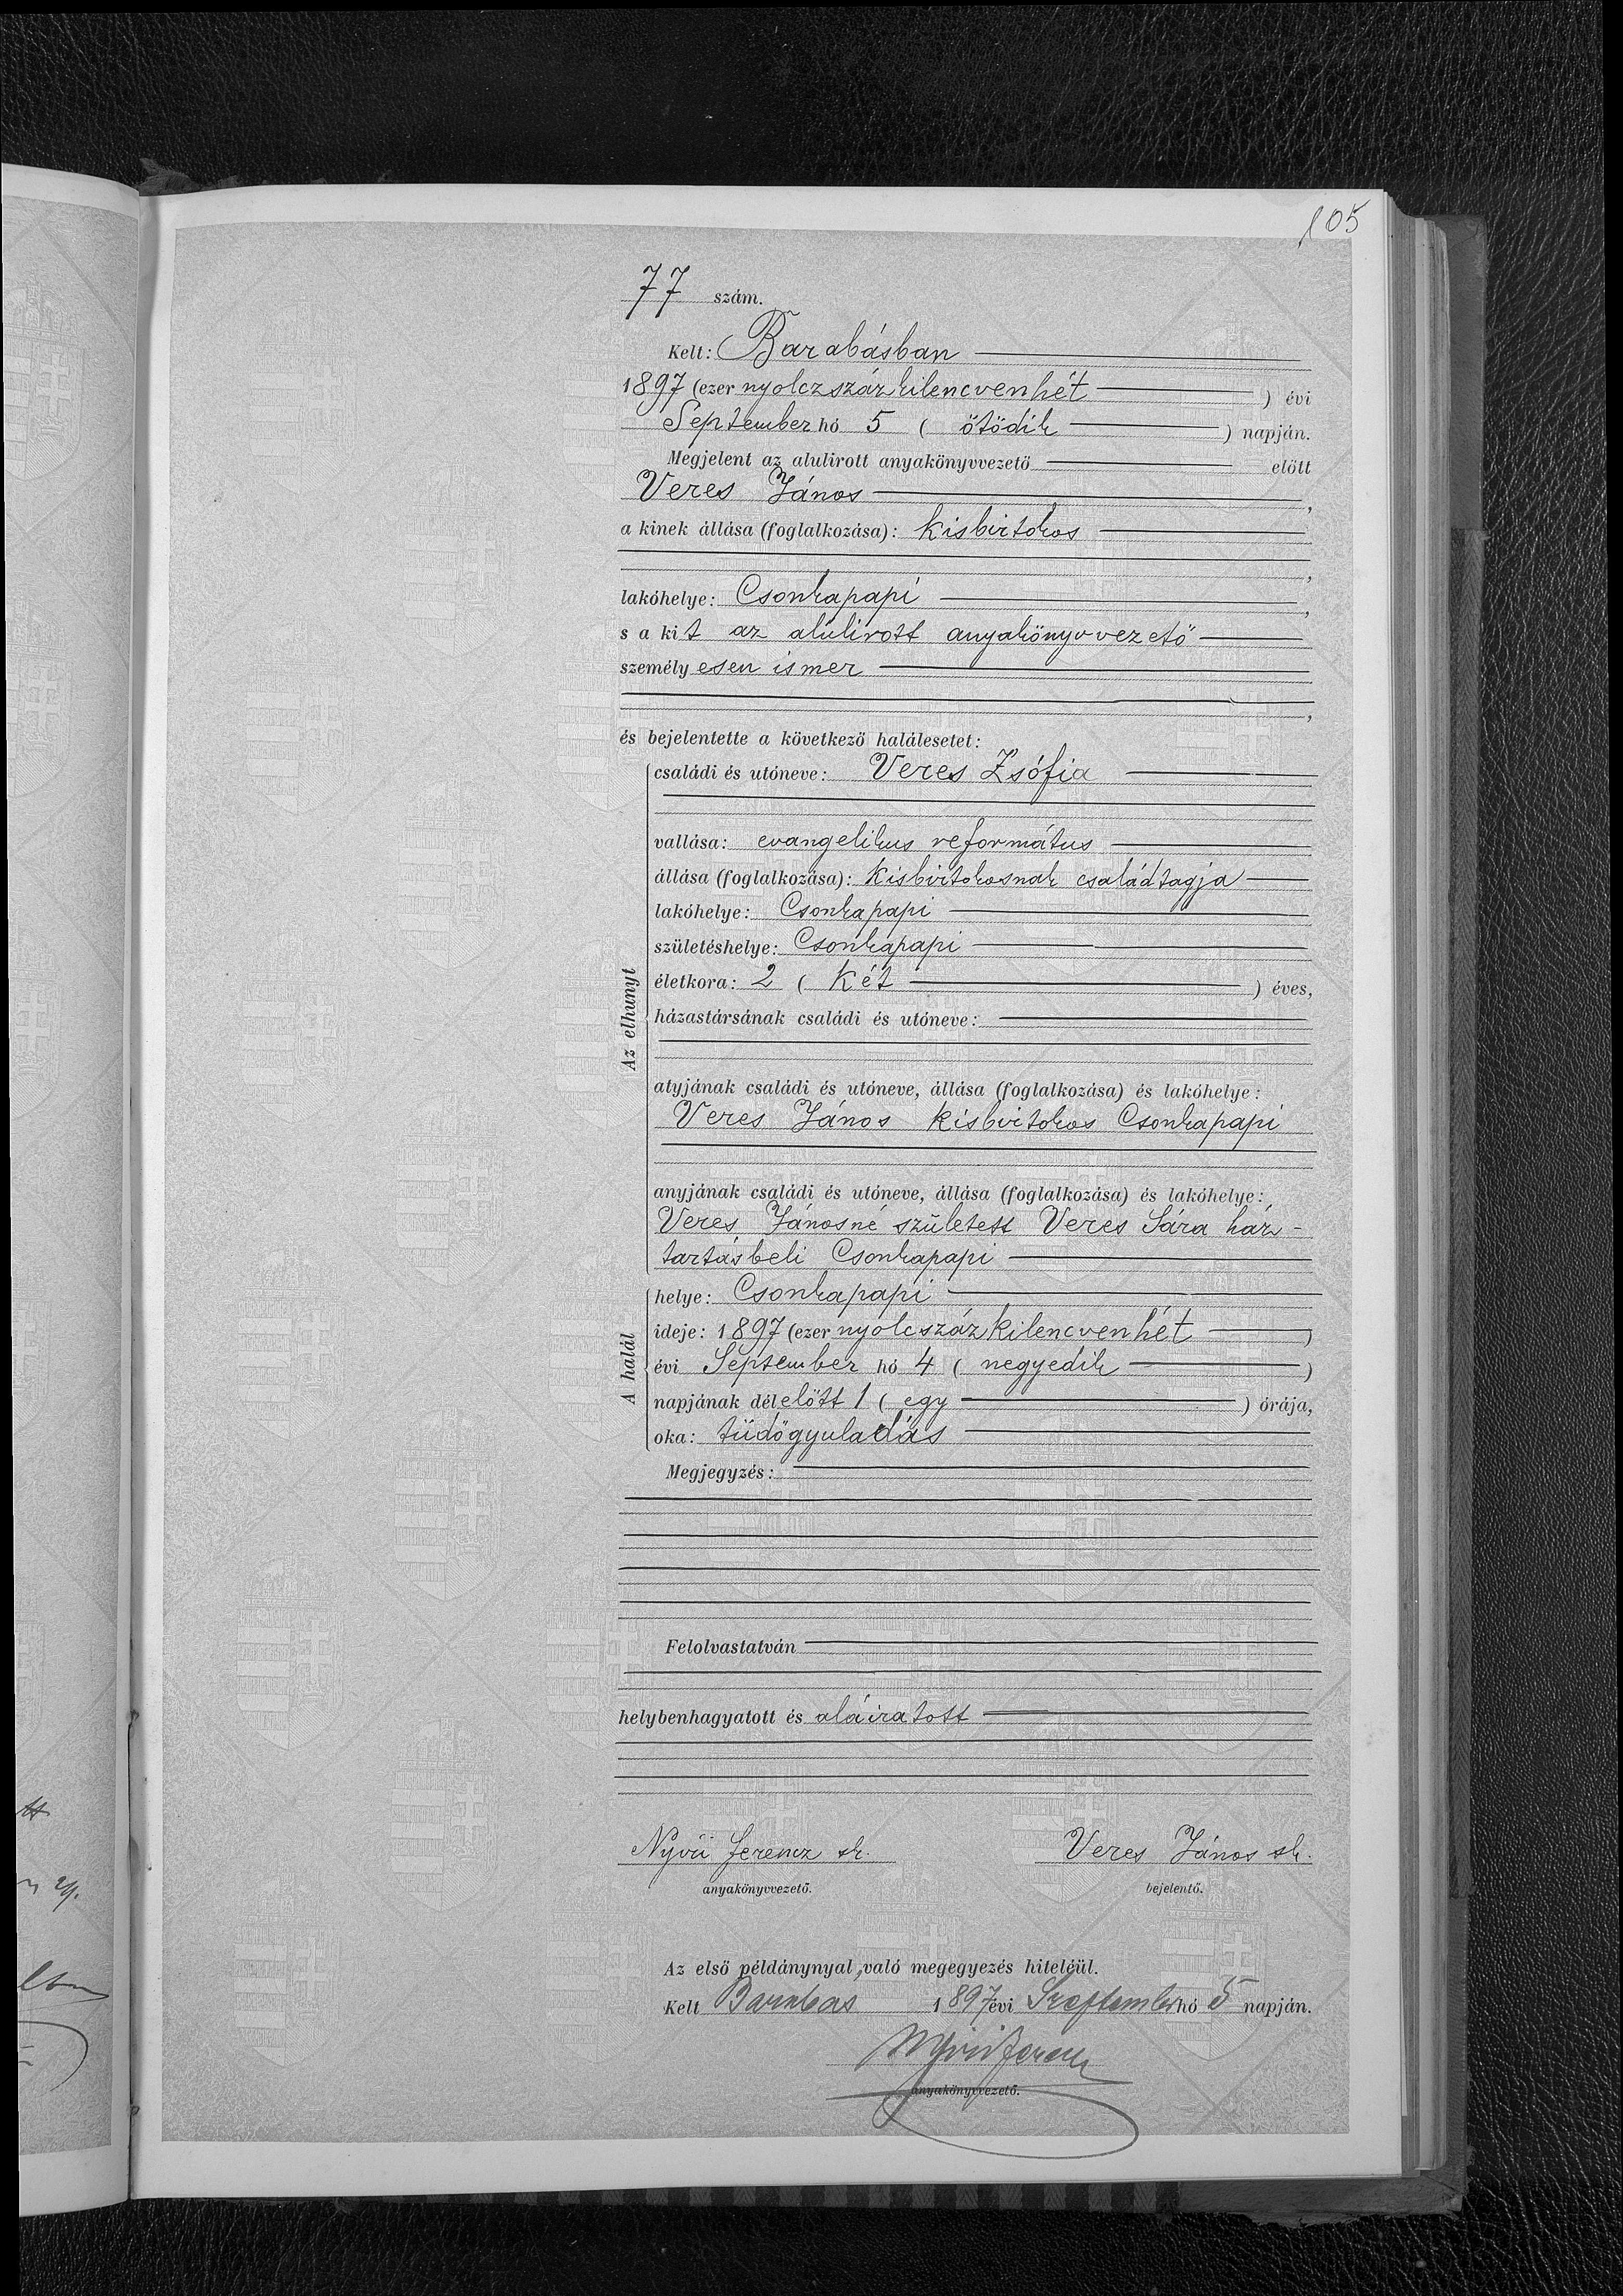 105
77 szám.
Kelt: Barabásban
1897 (ezer nyolczszázkilencvenhét ) évi
September hó 5 ( ötödik ) napján.
Megjelent az alulirott anyakönyvvezető előtt
Veres János ,
a kinek állása (foglalkozása): kisbirtokos
,
lakóhelye: Csonkapapi ,
s a kit az alulirott anyakönyvvezető
személyesen ismer
,
és bejelentette a következő halálesetet:
Az elhunyt
családi és utóneve: Veres Zsófia
vallása: evangelikus református
állása (foglalkozása): kisbirtokosnak családtagja
lakóhelye: Csonkapapi
születéshelye: Csonkapapi
életkora: 2 ( két ) éves,
házastársának családi és utóneve:
atyjának családi és utóneve, állása (foglalkozása) és lakóhelye:
Veres János kisbirtokos Csonkapapi
anyjának családi és utóneve, állása (foglalkozása) és lakóhelye:
Veres Jánosné született Veres Sára ház-
tartásbeli Csonkapapi
A halál
helye: Csonkapapi
ideje: 1897 (ezer nyolcszázkilencvenhét )
évi September hó 4 ( negyedik )
napjának délelőtt 1 ( egy ) órája,
oka: tüdőgyuladás
Megjegyzés:
Felolvastatván
helybenhagyatott és aláiratott
Nyiri Ferencz sk. Veres János sk.
anyakönyvvezető. bejelentő.
Az első példánynyal való megegyezés hiteléül.
Kelt Barabas 1897 évi Szeptember hó 5 napján.
Nyiri Ferencz
anyakönyvvezető.